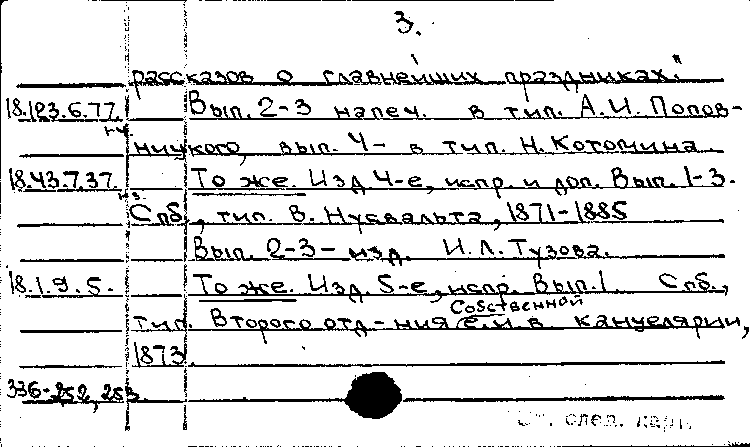 3.
рассказов о главнейших праздниках."
18.123.6.77. Вып. 2-3 напеч. в тип. А.И. Попов-
1-4
ницкого, вып. 4- в тип. Н. Котомина.
18.43.7.37. То же. Изд 4-е, испр. и доп. Вып. 1-3.
1-3.
Спб., тип. В. Нусвальта, 1871-1885
Вып. 2-3 - изд. И.Л. Тузова.
18.1.9.5. То же. Изд. 5-е, испр. Вып.1. Спб.,
Собственной
тип. Второго отд-ния е.и.в. канцелярии,
1873.
336-252, 253.
См. след. карт.